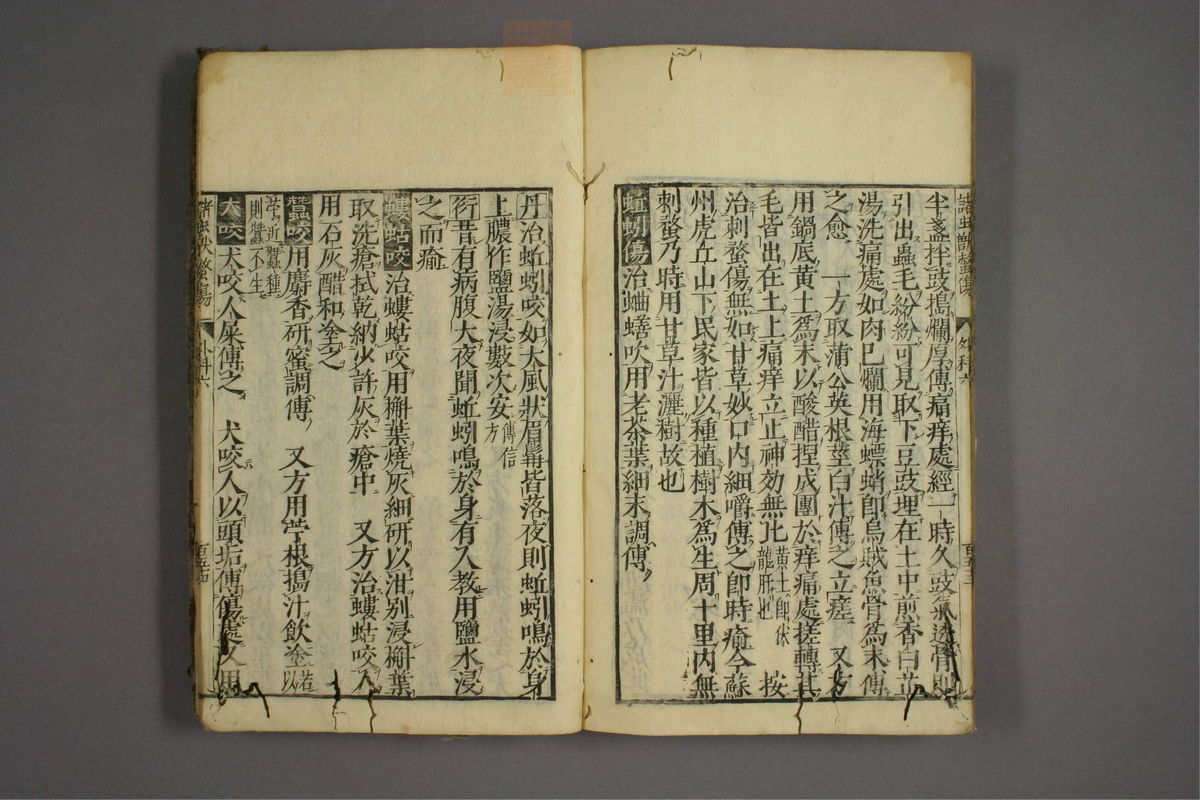 諸虫獸螫傷 外科六 百五三
半盞拌豉搗爛厚傳痛痒處經一時久豉氣透骨則
引出蟲毛紛紛可見取下豆豉埋在土中煎香白芷
湯洗痛處如肉已爛用海螵蛸卽烏賊魚骨爲末傳
之愈 一方取蒲公英根莖白汁傳之立瘥 又方
用鍋底黃土爲末以酸醋捏成團於痒痛處搓轉其
毛皆出在土上痛痒立止神効無比黃土卽伏龍肝也 按
治刺螫傷無如甘草妙口內細嚼傳之卽時瘉今蘇
州虎丘山下民家皆以種植樹木爲生周十里內無
刺螫乃時用甘草汁灑樹故也
蚯蚓傷治蛐蟮吹用老茶葉細末調傳
丹治蚯蚓咬如大風狀眉鬚皆落夜則蚯蚓鳴於身
上膿作鹽湯浸數次安傳信方
衍昔有病腹大夜聞蚯蚓鳴於身有人教用鹽水浸
之而瘉
螻蛄咬治螻蛄咬用槲葉燒灰細研以泔別浸槲葉
取洗瘡拭乾納少許灰於瘡中 又方治螻蛄咬人
用石灰醋和塗之
蠶咬用麝香研蜜調傳 又方用苧根搗汁飲塗若以
苧近蠶種則蠶不生
犬咬犬咬人屎傳之 犬咬人以頭垢傳傷處又用
諸虫獸螫傷 外科六 百五四